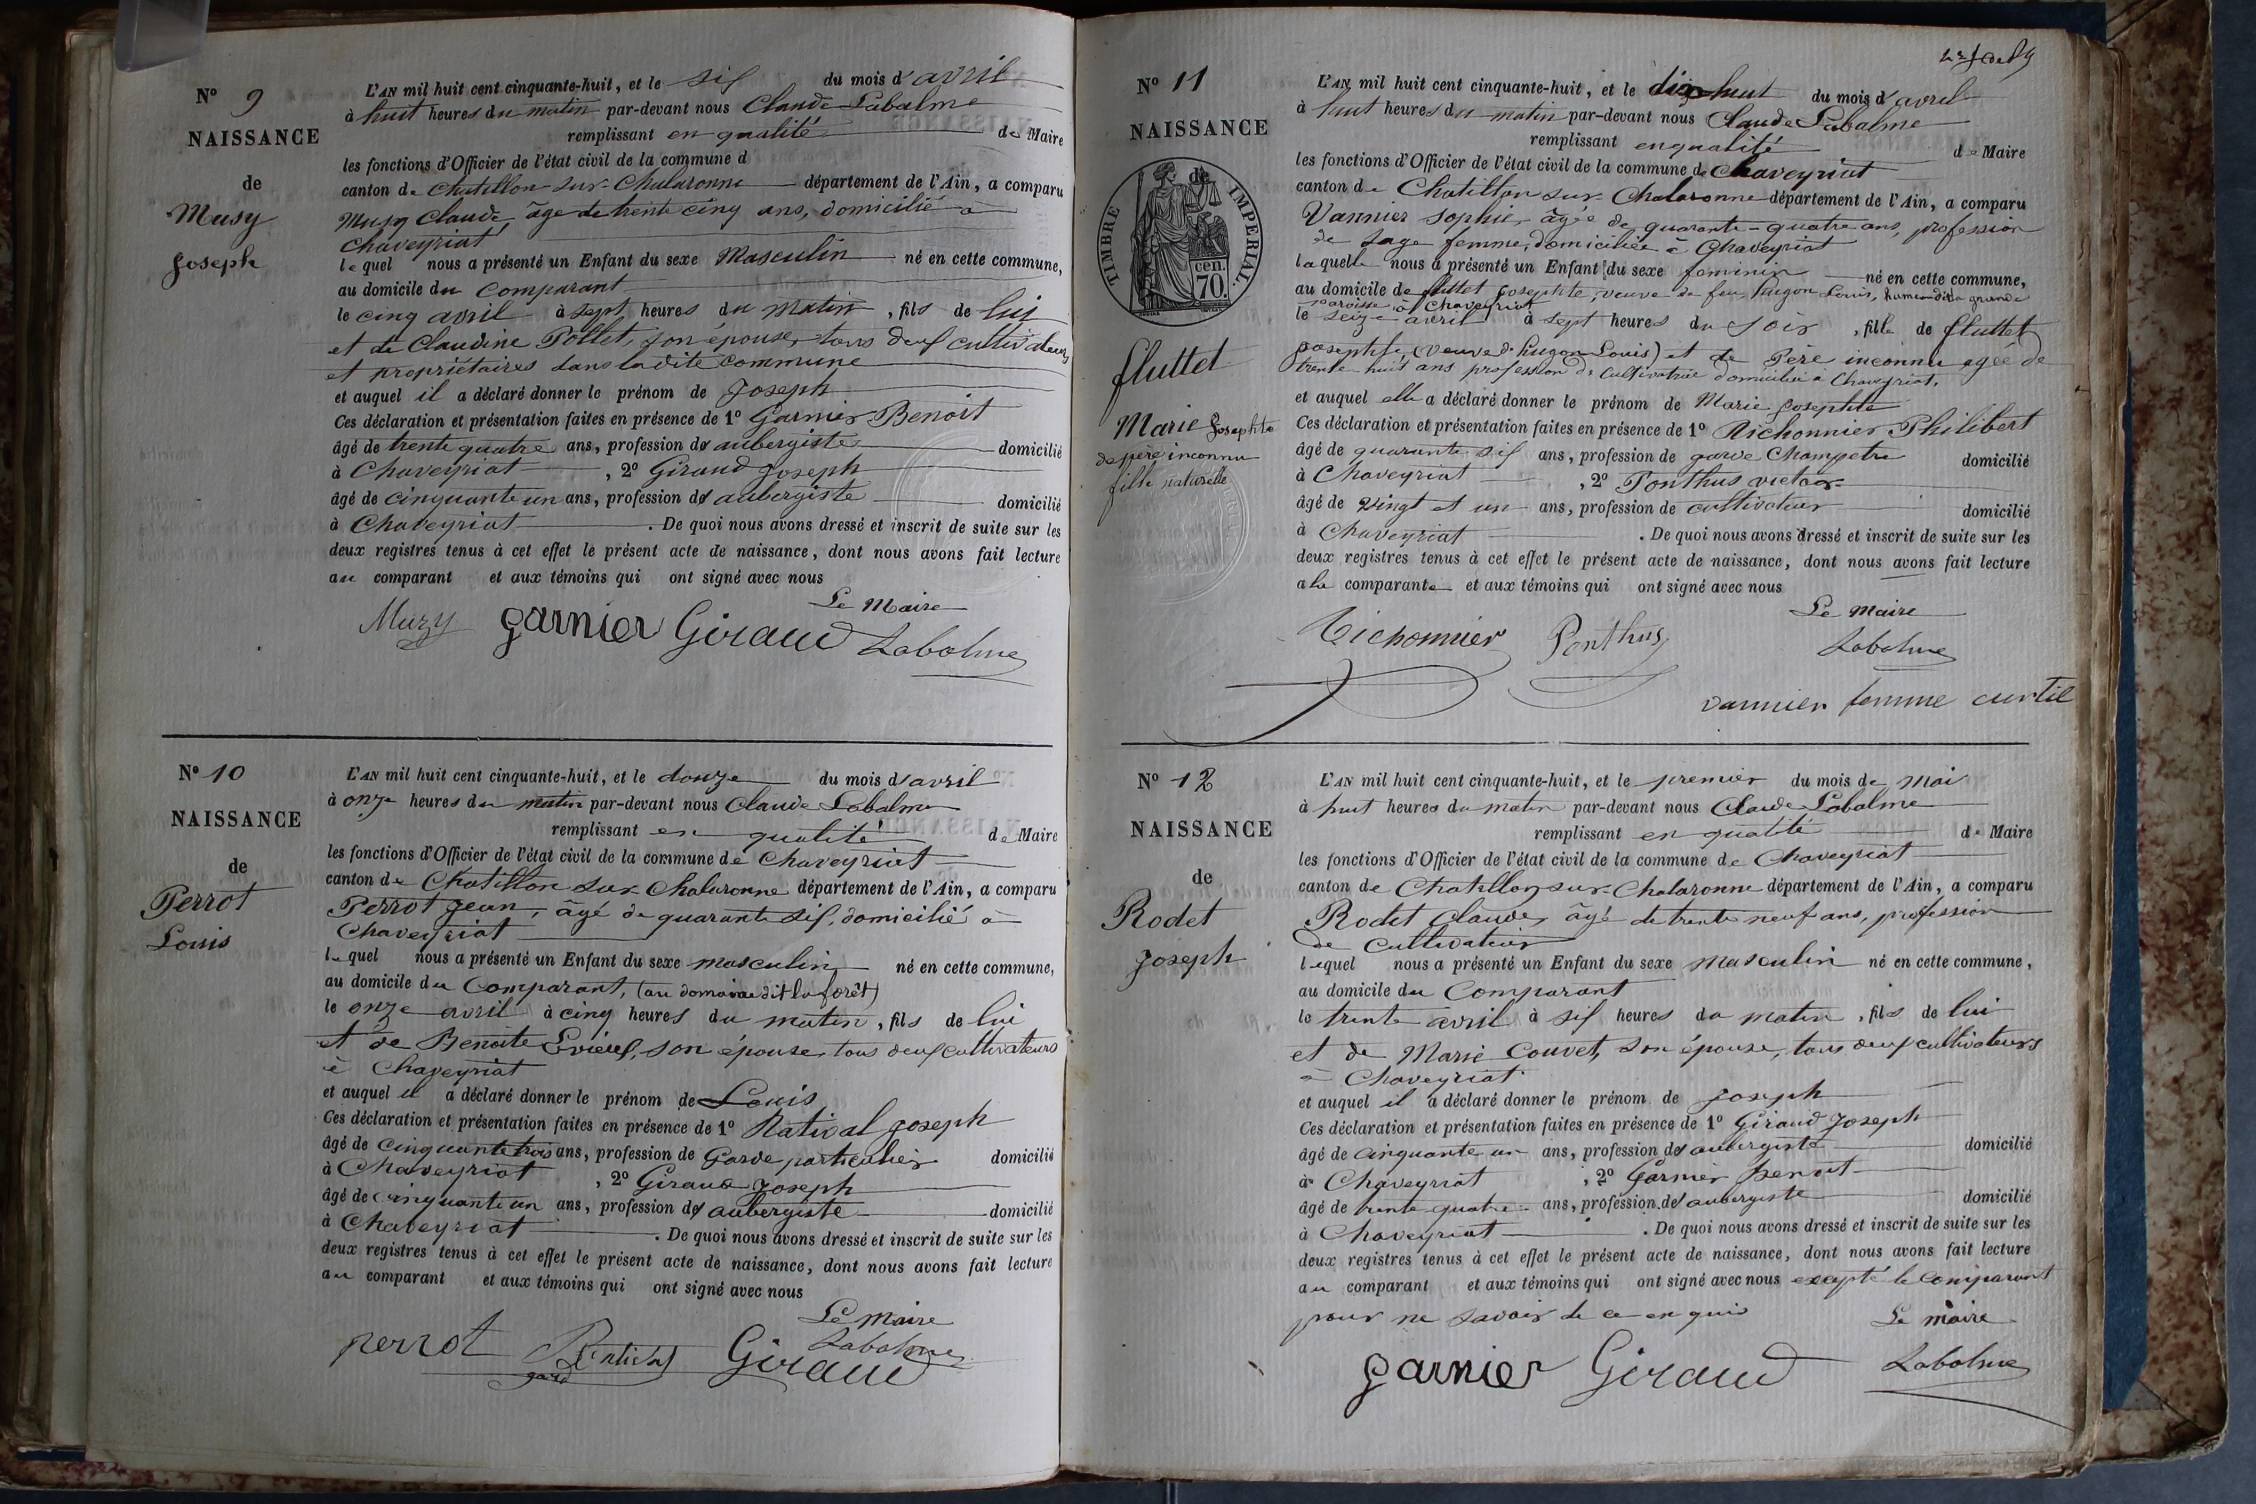 N° 9
NAISSANCE
de
Musy
Joseph
L'AN mil huit cent cinquante-huit, et le six du mois d'avril
à huit heures du matin par-devant nous Claude Labalme
remplissant en qualité de Maire
les fonctions d'Officier de l'état civil de la commune d
canton de Chatillon-sur-Chalaronne département de l'Ain, a comparu
Musy Claude âgé de trente cinq ans, domicilié à
Chaveyriat
lequel nous a présenté un Enfant du sexe Masculin né en cette commune,
au domicile du comparant
le cinq avril à sept heures du matin, fils de lui
et de Claudine Pollet, son épouse, tous deux cultivateurs
et propriétaires dans la dite commune
et auquel il a déclaré donner le prénom de Joseph
Ces déclaration et présentation faites en présence de 1° Garnier Benoit
âgé de trente quatre ans, profession d'aubergiste domicilié
à Chaveyriat, 2° Giraud Joseph
âgé de cinquante un ans, profession d'aubergiste domicilié
à Chaveyriat. De quoi nous avons dressé et inscrit de suite sur les
deux registres tenus à cet effet le présent acte de naissance, dont nous avons fait lecture
au comparant et aux témoins qui ont signé avec nous
Le Maire
Muzy garnier Giraud Labalme
N° 10
NAISSANCE
de
Perrot
Louis
L'AN mil huit cent cinquante-huit, et le douze du mois d'avril
à onze heures du matin par-devant nous Claude Labalme
remplissant en qualité de Maire
les fonctions d'Officier de l'état civil de la commune de Chaveyriat
canton de Chatillon sur Chalaronne département de l'Ain, a comparu
Perrot Jean, âgé de quarante six, domicilié à
Chaveyriat
lequel nous a présenté un Enfant du sexe masculin né en cette commune,
au domicile du Comparant, (au domaine dit la forêt)
le onze avril à cinq heures du matin, fils de lui
et de Benoite son épouse, tous deux cultivateurs
à Chaveyriat
et auquel il a déclaré donner le prénom de Louis
Ces déclaration et présentation faites en présence de 1° Rativat Joseph
âgé de cinquante trois ans, profession de Garde particulier domicilié
à Chaveyriat, 2° Giraud Joseph
âgé de cinquante un ans, profession d'aubergiste domicilié
à Chaveyriat. De quoi nous avons dressé et inscrit de suite sur les
deux registres tenus à cet effet le présent acte de naissance, dont nous avons fait lecture
au comparant et aux témoins qui ont signé avec nous
Le Maire
Labalme
perrot Giraud
N° 11
NAISSANCE
TIMBRE IMPERIAL.
cen.
70.
fluttet
Marie Josephte
de père inconnu
fille naturelle
L'AN mil huit cent cinquante-huit, et le dix huit du mois d'avril
à huit heures du matin par-devant nous Claude Labalme
remplissant en qualité de Maire
les fonctions d'Officier de l'état civil de la commune de Chaveyriat
canton de Chatillon sur Chalaronne département de l'Ain, a comparu
Vannier Sophie, âgée de quarante-quatre ans, profession
de sage femme, domiciliée à Chaveyriat
laquelle nous a présenté un Enfant du sexe feminin né en cette commune,
au domicile de fluttet Josephte, veuve de feu Louis, hameau dit la grande
paroisse à Chaveyriat
le seize avril à sept heures du soir, fille de fluttet
Josephte, (veuve de Louis) et de Père inconnu agée de
trente-huit ans profession de Cultivatrice domiciliée à Chaveyriat,
et auquel elle a déclaré donner le prénom de Marie Josephte
Ces déclaration et présentation faites en présence de 1° Richonnier Philibert
âgé de quarante six ans, profession de garde Champetre domicilié
à Chaveyriat, 2° Ponthus victor
âgé de vingt et un ans, profession de cultivateur domicilié
à Chaveyriat. De quoi nous avons dressé et inscrit de suite sur les
deux registres tenus à cet effet le présent acte de naissance, dont nous avons fait lecture
a la comparante et aux témoins qui ont signé avec nous
Le Maire
Richonnier Ponthus Labalme
vannier femme curtil
N° 12
NAISSANCE
de
Rodet
Joseph
L'AN mil huit cent cinquante-huit, et le premier du mois de Mai
à huit heures du matin par-devant nous Claude Labalme
remplissant en qualité de Maire
les fonctions d'Officier de l'état civil de la commune de Chaveyriat
canton de Chatillon sur Chalaronne département de l'Ain, a comparu
Rodet Claude, âgé de trente neuf ans, profession
de cultivateur
lequel nous a présenté un Enfant du sexe masculin né en cette commune,
au domicile du Comparant
le trente avril à six heures du matin, fils de lui
et de Marie Couvet, son épouse, tous deux cultivateurs
à Chaveyriat
et auquel il a déclaré donner le prénom de Joseph
Ces déclaration et présentation faites en présence de 1° Giraud Joseph
âgé de cinquante un ans, profession d'aubergiste domicilié
à Chaveyriat, 2° Garnier Benoit
âgé de trente quatre ans, profession d'aubergiste domicilié
à Chaveyriat. De quoi nous avons dressé et inscrit de suite sur les
deux registres tenus à cet effet le présent acte de naissance, dont nous avons fait lecture
au comparant et aux témoins qui ont signé avec nous excepté le comparant
pour ne savoir de ce enquis
Le maire
garnier Giraud Labalme